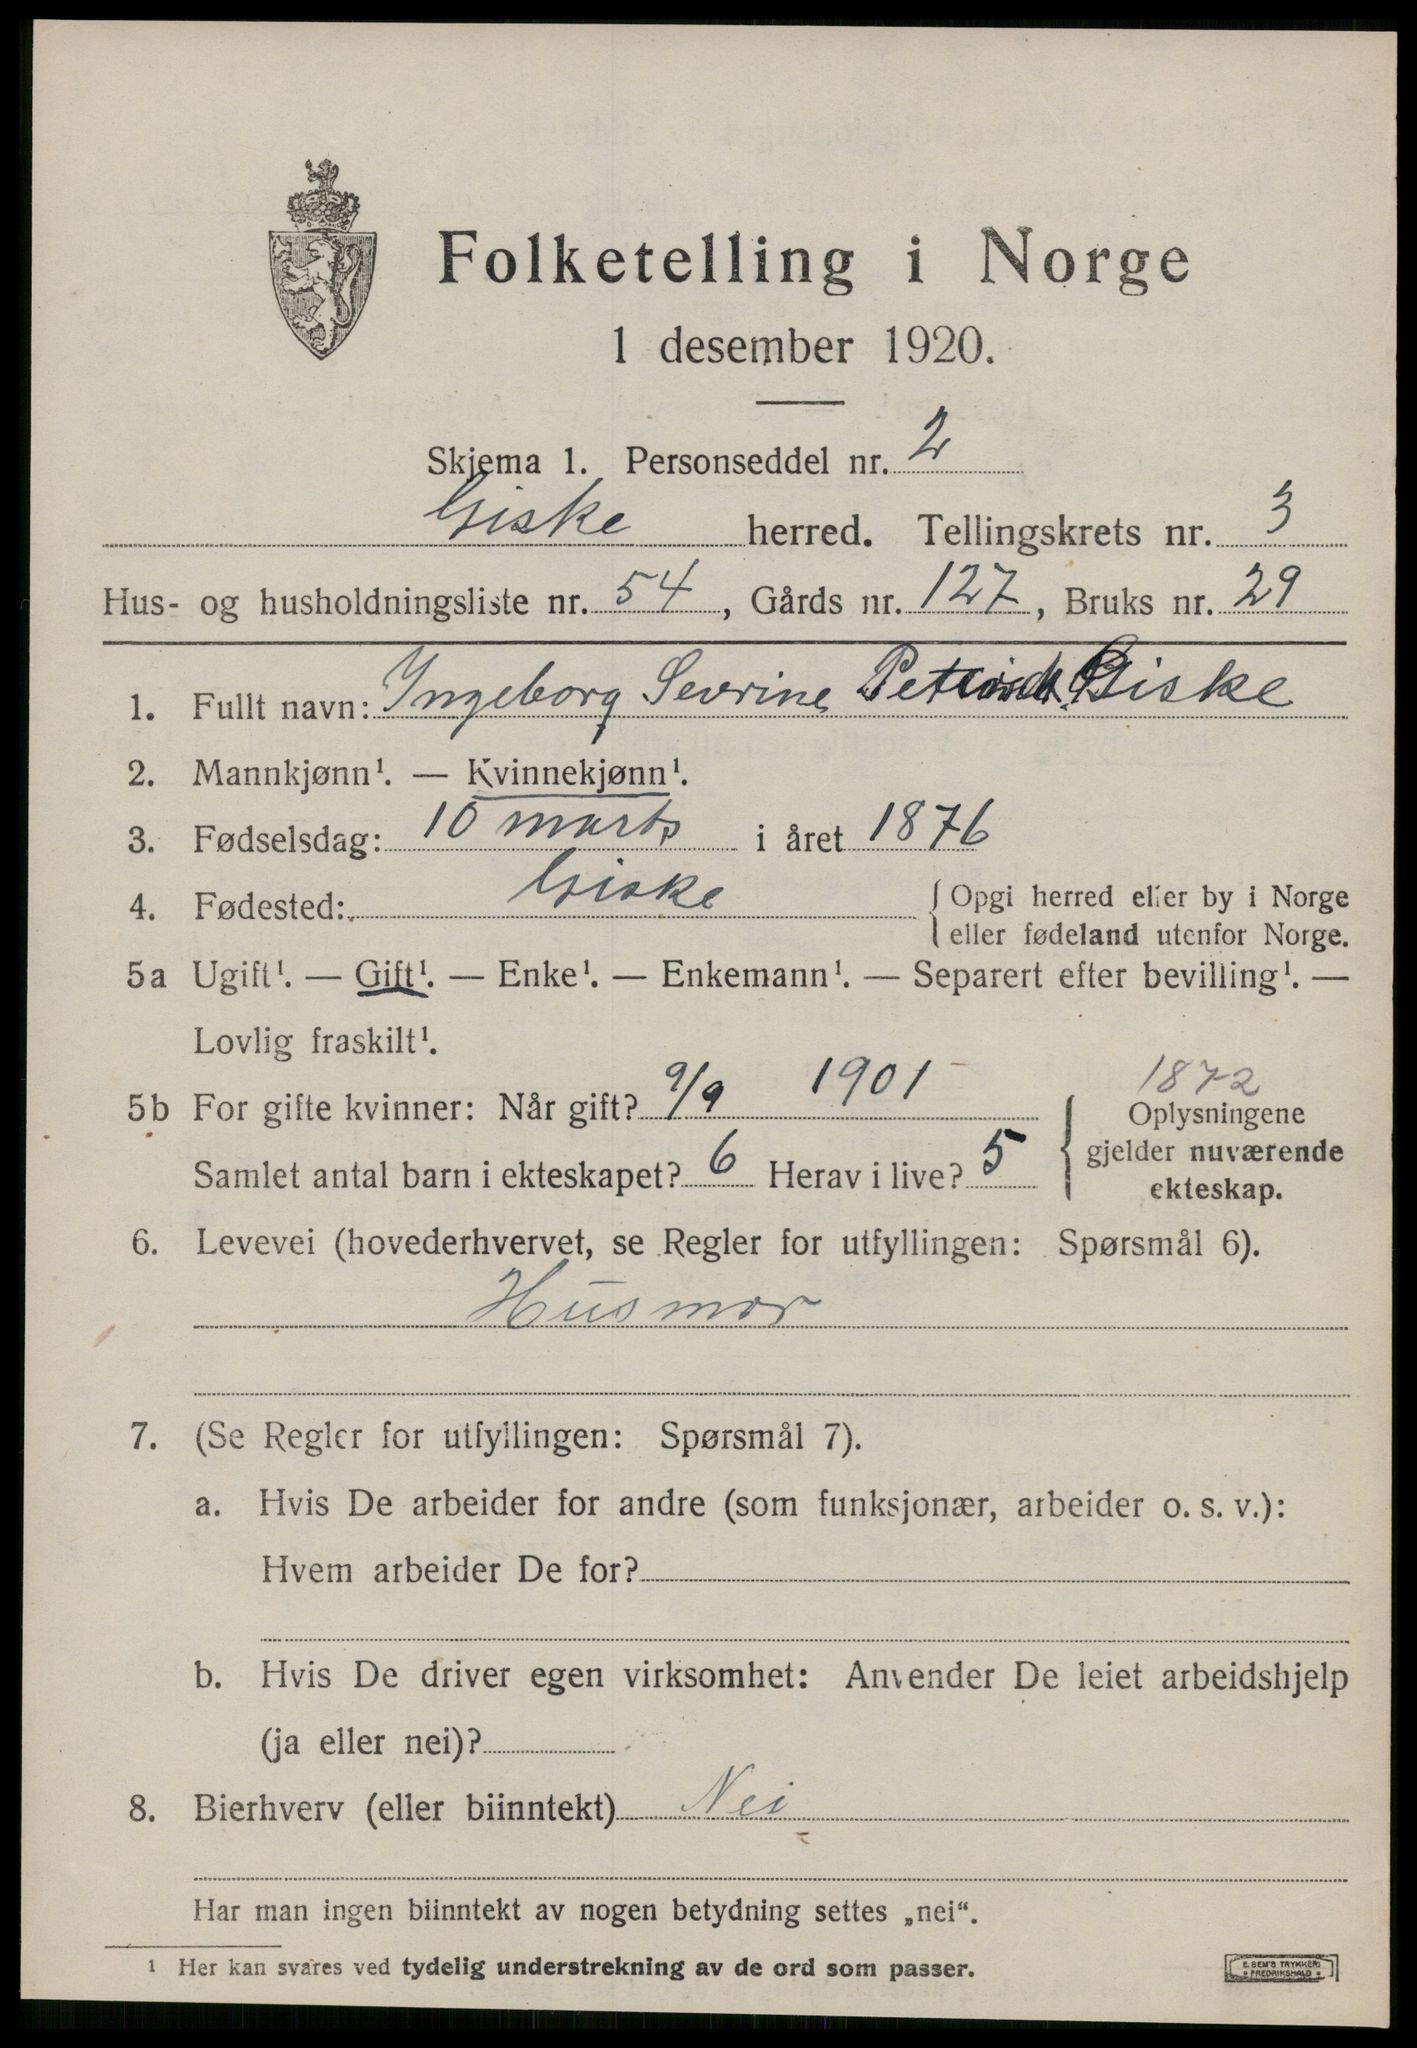 Folketelling i Norge
1 desember 1920.
Skjema 1. Personseddel nr. 2
Giske herred. Tellingskrets nr. 3
Hus- og husholdningsliste nr. 54, Gårds nr. 127, Bruks nr. 29
1. Fullt navn: Ingeborg Severine Giske
2. Mannkjønn¹. — Kvinnekjønn¹.
3. Fødselsdag: 10 marts i året 1876
4. Fødested: Giske { Opgi herred eller by i Norge
eller fødeland utenfor Norge.
5a Ugift¹. — Gift¹. — Enke¹. — Enkemann¹. — Separert efter bevilling¹. —
Lovlig fraskilt¹.
5b For gifte kvinner: Når gift? 9/9 1901
Samlet antal barn i ekteskapet? 6 Herav i live? 5
1872
Oplysningene
gjelder nuværende
ekteskap.
6. Levevei (hovederhvervet, se Regler for utfyllingen: Spørsmål 6).
Husmor
7. (Se Regler for utfyllingen: Spørsmål 7).
a. Hvis De arbeider for andre (som funksjonær, arbeider o. s. v.):
Hvem arbeider De for?
b. Hvis De driver egen virksomhet: Anvender De leiet arbeidshjelp
(ja eller nei)?
8. Bierhverv (eller biinntekt) Nei
Har man ingen biinntekt av nogen betydning settes „nei“.
¹ Her kan svares ved tydelig understrekning av de ord som passer.
E. SEM'S TRYKKERI
• FREDRIKSHALD •